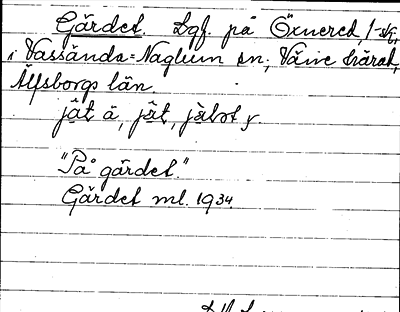 Gärdet. Lgf. på Öxnered, 1-stg,
i Vassända=Naglum sn; Väne härad,
Älfsborgs län.
jät ä, jät, jälət y.
"På gärdet."
Gärdet ml. 1934